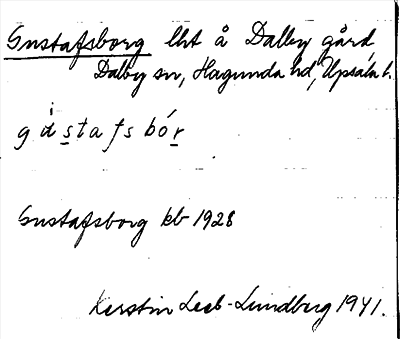 Gustafsborg lht å Dalby gård
Dalby sn, Hagunda hd, Upsala l.
Gustafsborg kb 1928
Kerstin Leeb-Lundberg 1941.